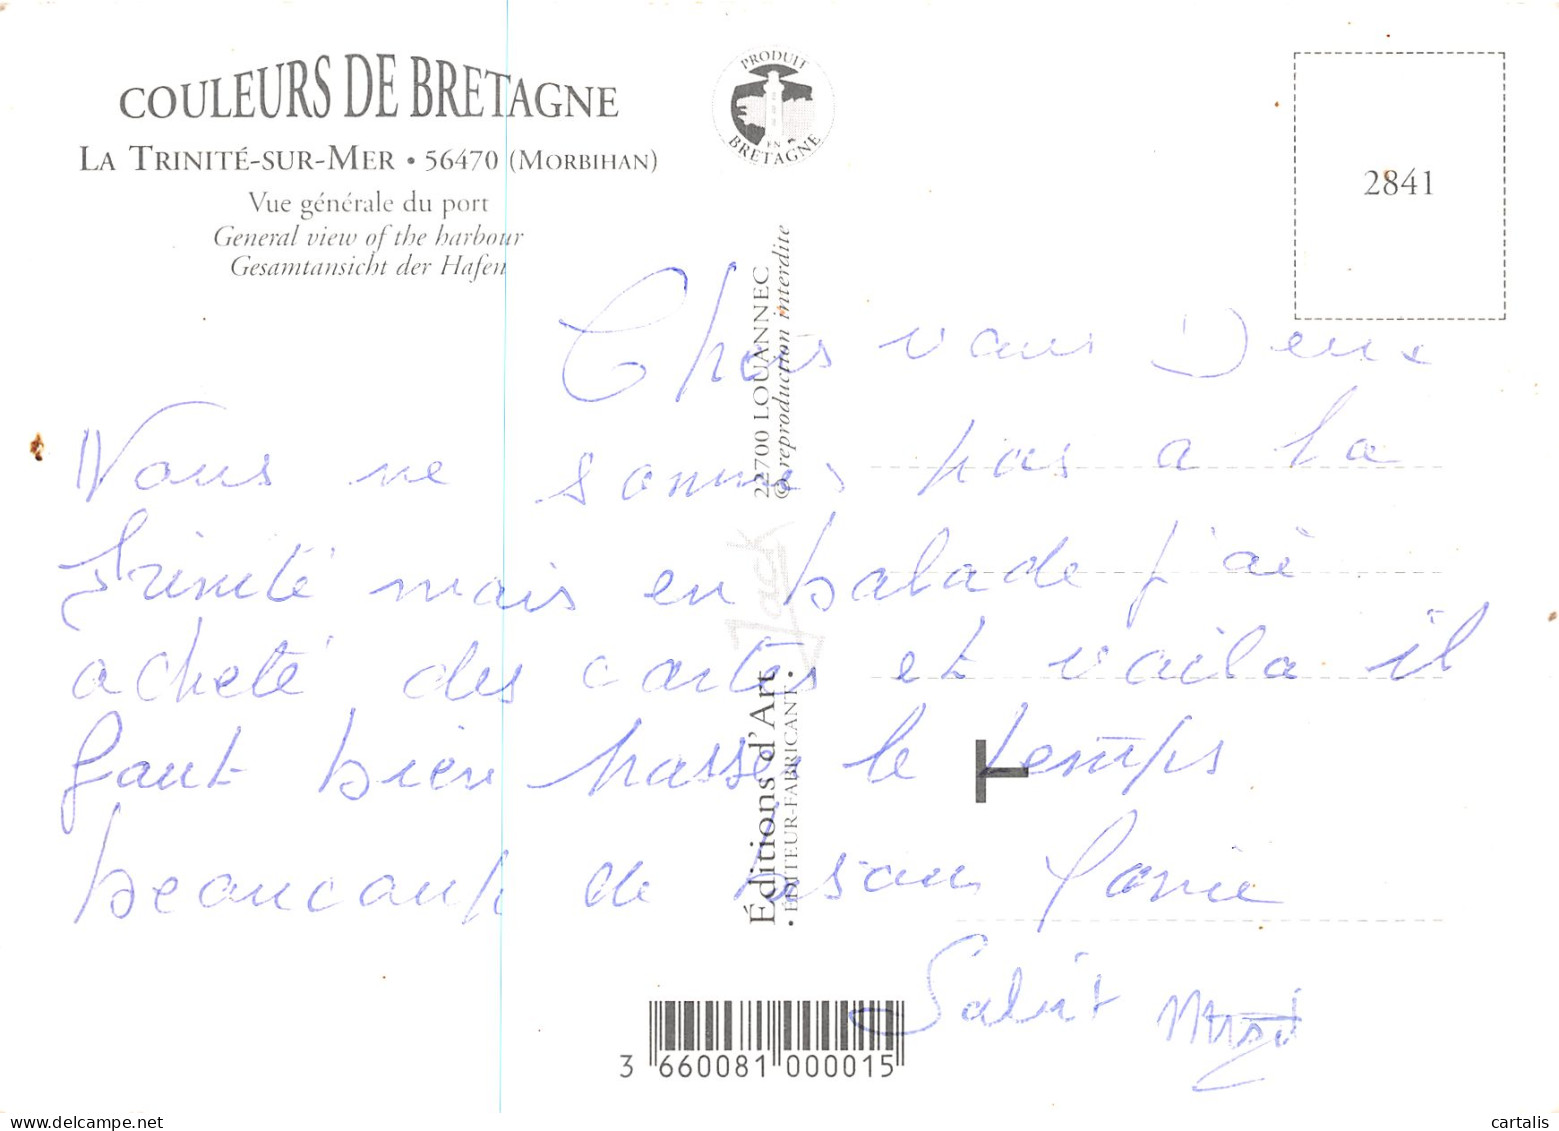 COULEURS DE BRETAGNE
LA TRINITÉ-SUR-MER • 56470 (MORBIHAN)
Vue générale du port
General view of the harbour
Gesamtansicht der Hafen
PRODUIT
EN
BRETAGNE
2841
Chers vous Deux
Nous ne sommes pas a la
Trinité mais en balade j'ai
acheté des cartes et voila il
faut bien passer le temps
beaucoup de bisous
Salut
Éditions d'Art Jack
22700 LOUANNEC
• ÉDITEUR-FABRICANT •
© reproduction interdite
3 660081 000015
cartalis